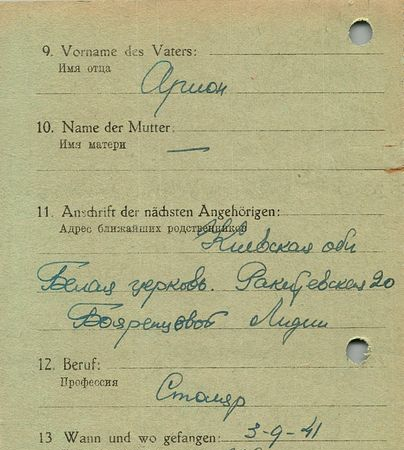 9. Vorname des Vaters:
Имя отца
Арион
10. Name der Mutter:
Имя матери —
11. Anschrift der nächsten Angehörigen:
Адрес ближайших родственников
Киевская обл
Белая церковь. Ракитевская 20
Бояренцовой Лидии
12. Beruf:
Профессия
Столяр
13 Wann und wo gefangen: 3-9-41